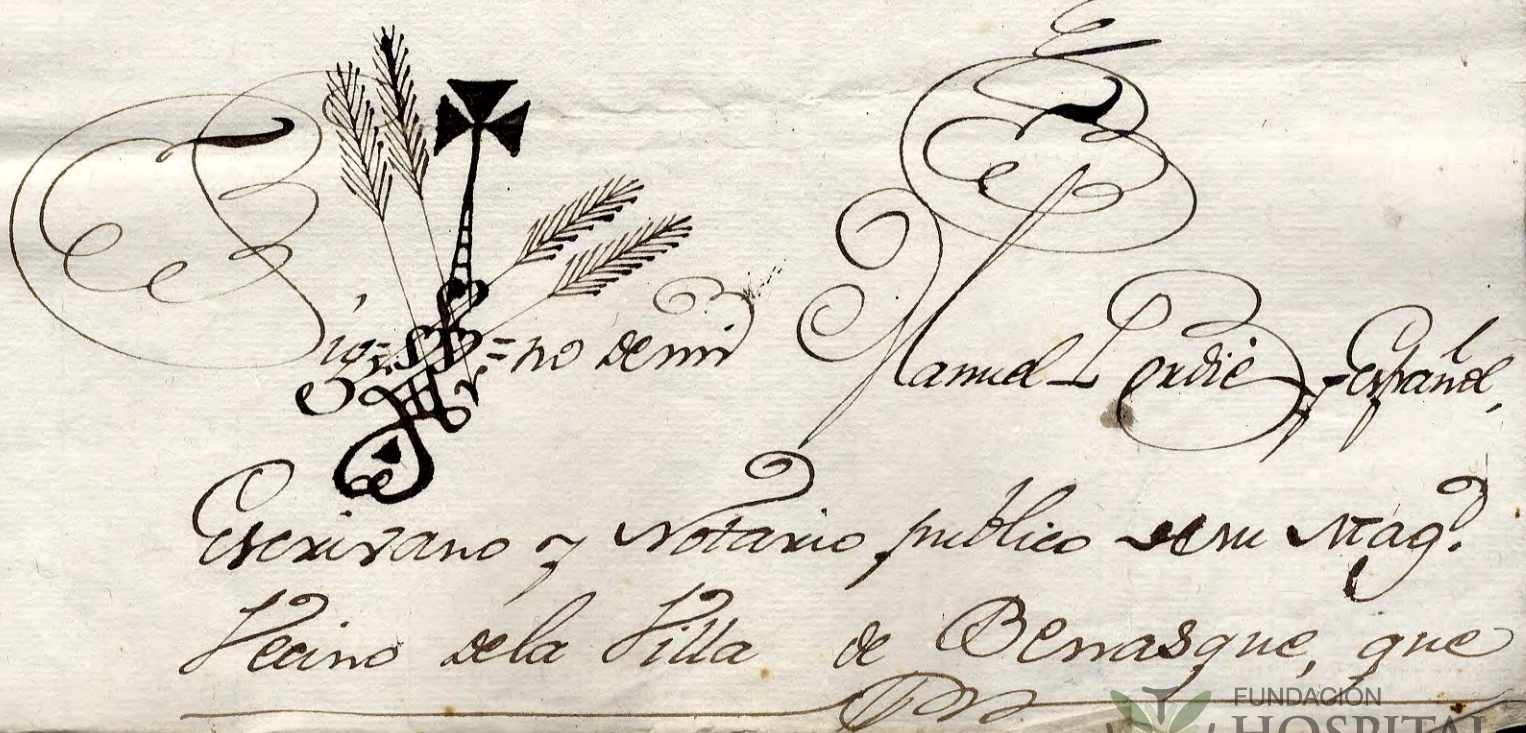 Sig=no de mi Manuel Ferdié y Español,
Escrivano y Notario publico de su Mag.d
Vecino de la Villa de Benasque, que
FUNDACIÓN
HOSPITAL